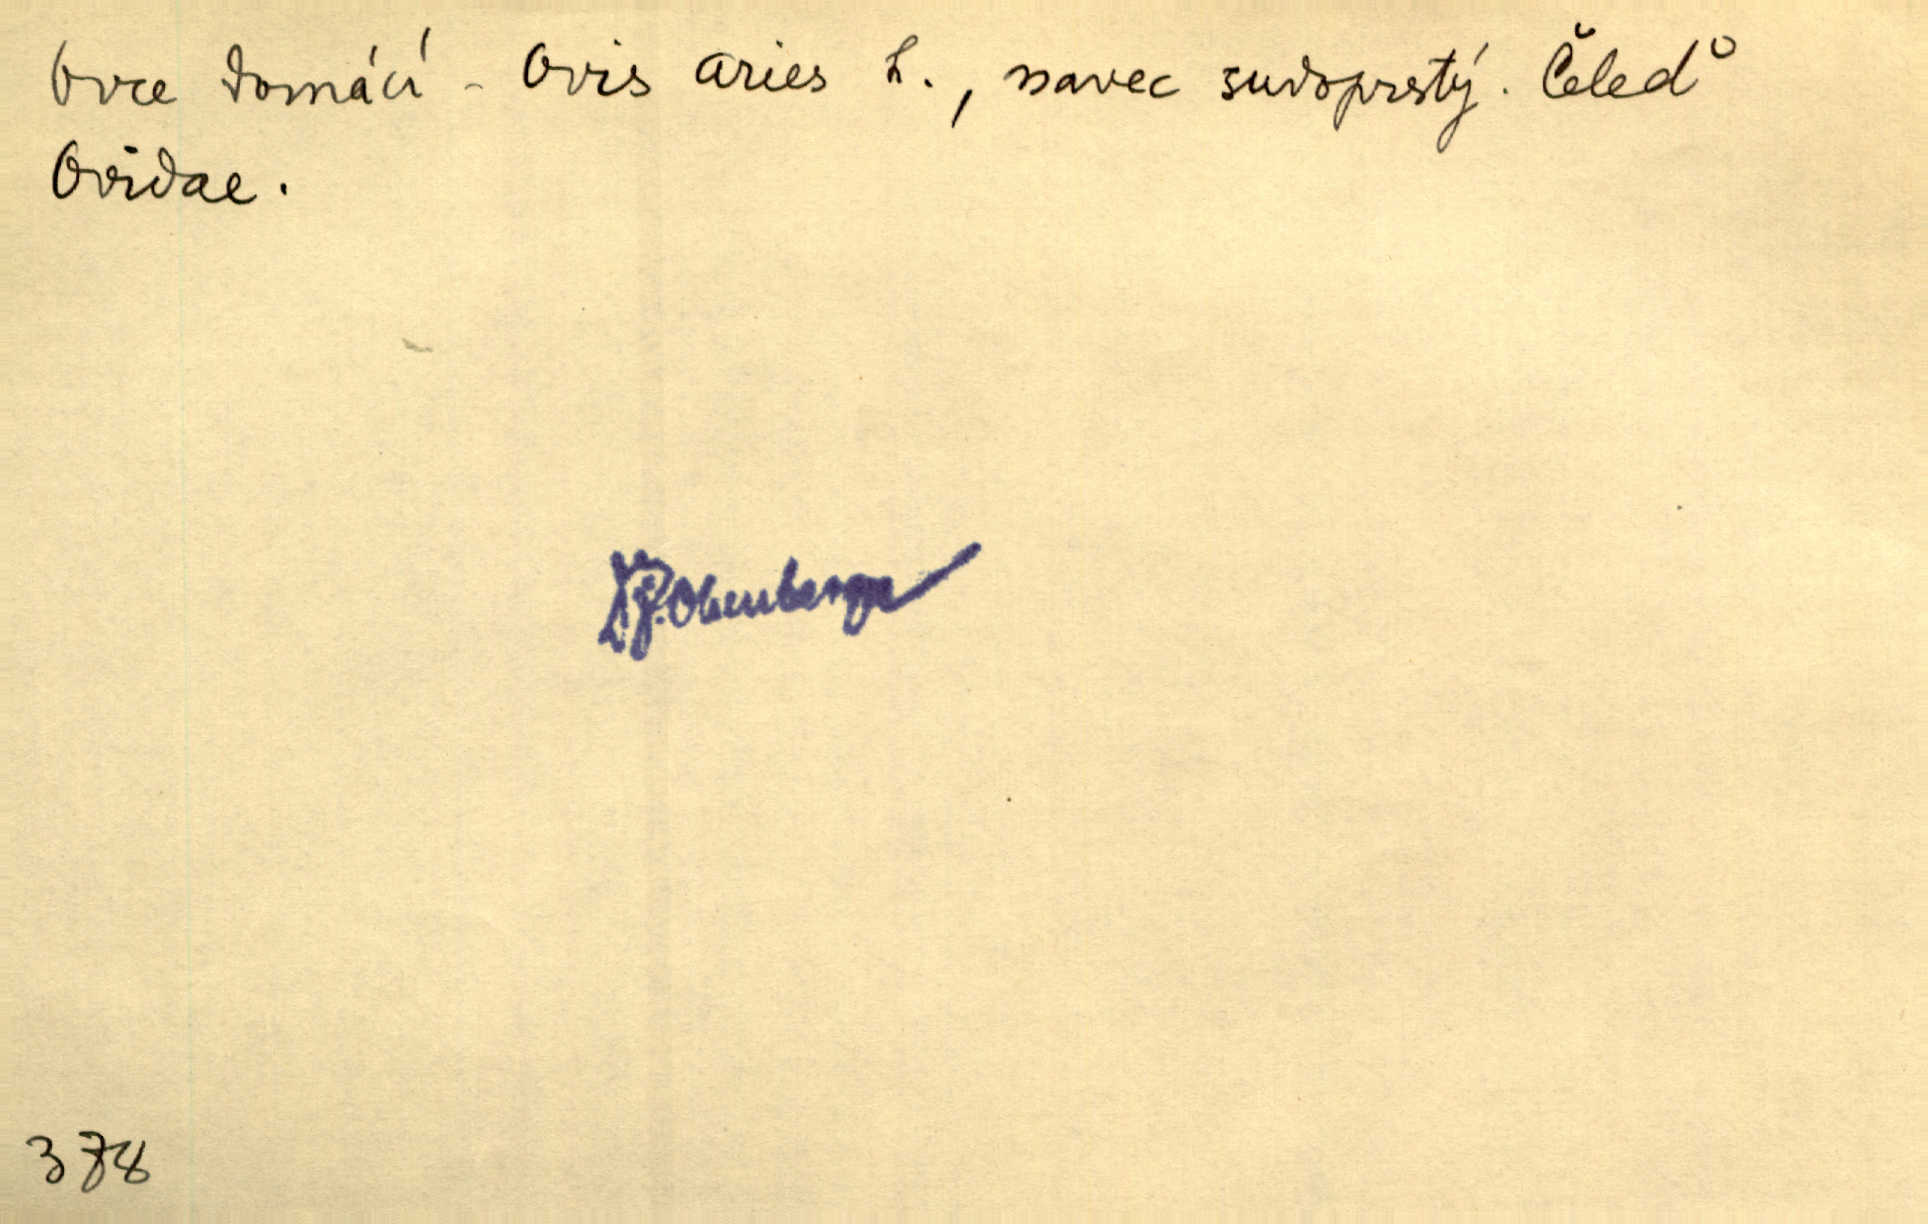 Ovce domácí - Ovis aries L., ssavec sudoprstý. Čeleď
Ovidae.
Dr J. Obenberger
378